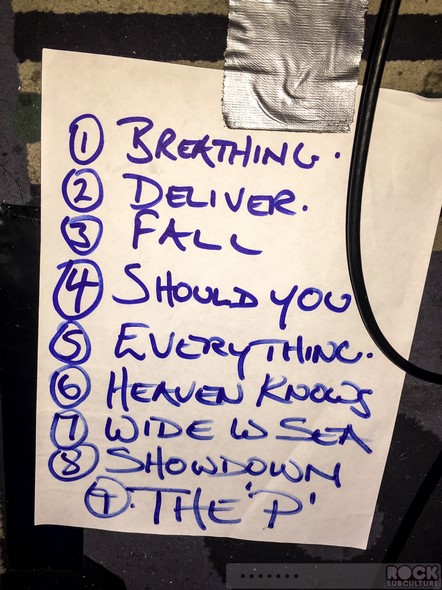 ① BREATHING.
② DELIVER.
③ FALL
④ SHOULD YOU
⑤ EVERYTHING.
⑥ HEAVEN KNOWS
⑦ WIDE W SEA
⑧ SHOWDOWN
⑨. THE 'P'
ROCK
SUBCULTURE